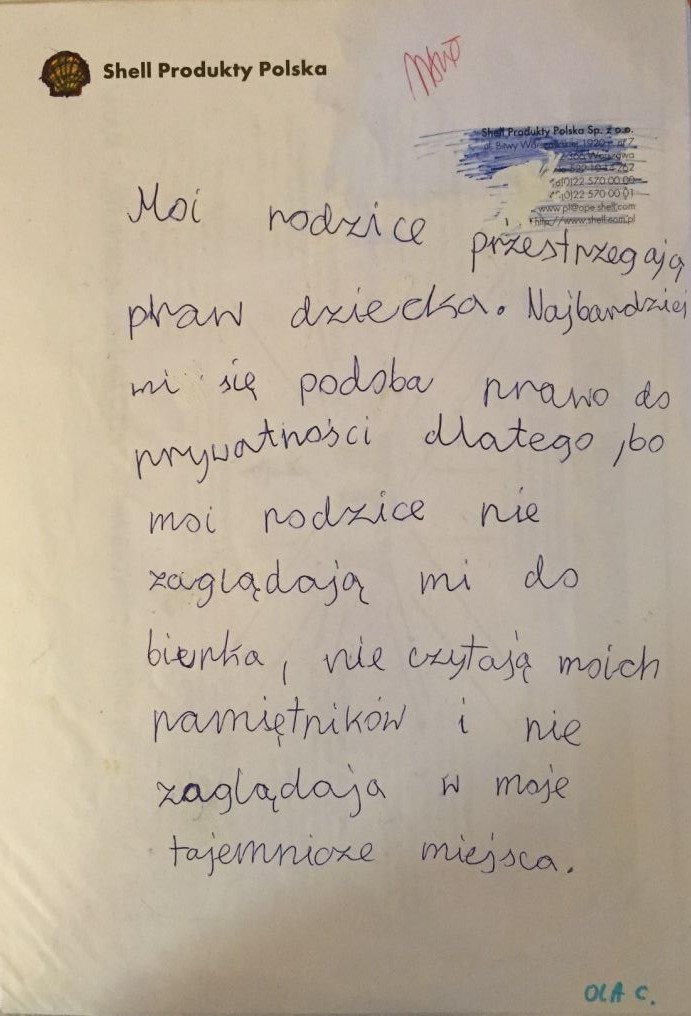 Shell Produkty Polska
Shell Produkty Polska Sp. z o.o.
ul. Bitwy Warszawskiej 1920 r. nr 7
Warszawa
570 00 00
(0)22 570 00 01
http://www.shell.com.pl
Moi rodzice przestrzegają
praw dziecka. Najbardziej
mi się podoba prawo do
prywatności dlatego, bo
moi rodzice nie
zaglądają mi do
biurka, nie czytają moich
pamiętników i nie
zaglądaja w moje
tajemnicze miejsca.
OLA C.